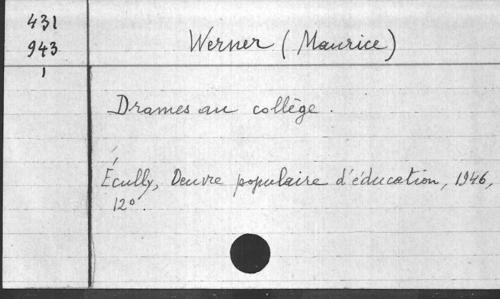 431
943
1
Werner (Maurice)
Drames au collège.
Écully, Oeuvre populaire d'éducation, 1946,
12°.